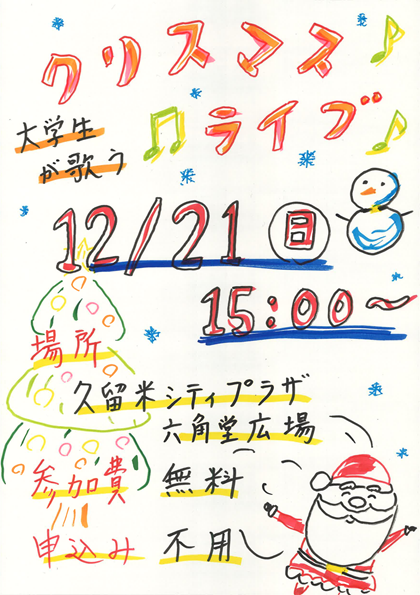 クリスマス
ライブ
大学生
が歌う
12/21 日
15:00〜
場所
久留米シティプラザ
六角堂広場
参加費 無料
申込み 不用し